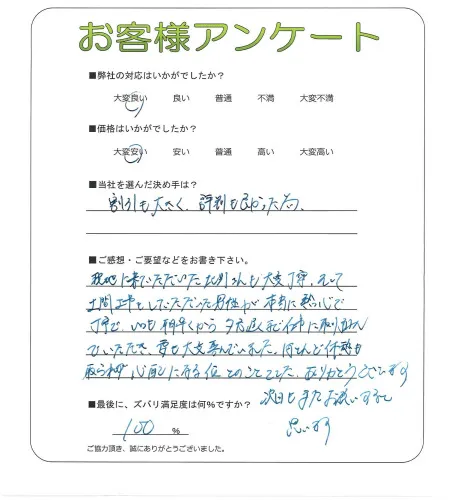 お客様アンケート
■弊社の対応はいかがでしたか？
大変良い 良い 普通 不満 大変不満
■価格はいかがでしたか？
大変安い 安い 普通 高い 大変高い
■当社を選んだ決め手は？
割引も大きく、評判も良かった為、
■ご感想・ご要望などをお書き下さい。
現地に来ていただいた さんも大変丁寧、そして
土間工事をしていただいた男性が本当に熱心で
丁寧で、いつも朝早くから夕方遅くまで仕事に取り組んで
いただき、妻も大変喜んでいました。ほとんど休憩も
取られず心配になる位とのことでした。ありがとうございます
次回もまたお願いすると
思います
■最後に、ズバリ満足度は何%ですか？
100 %
ご協力頂き、誠にありがとうございました。